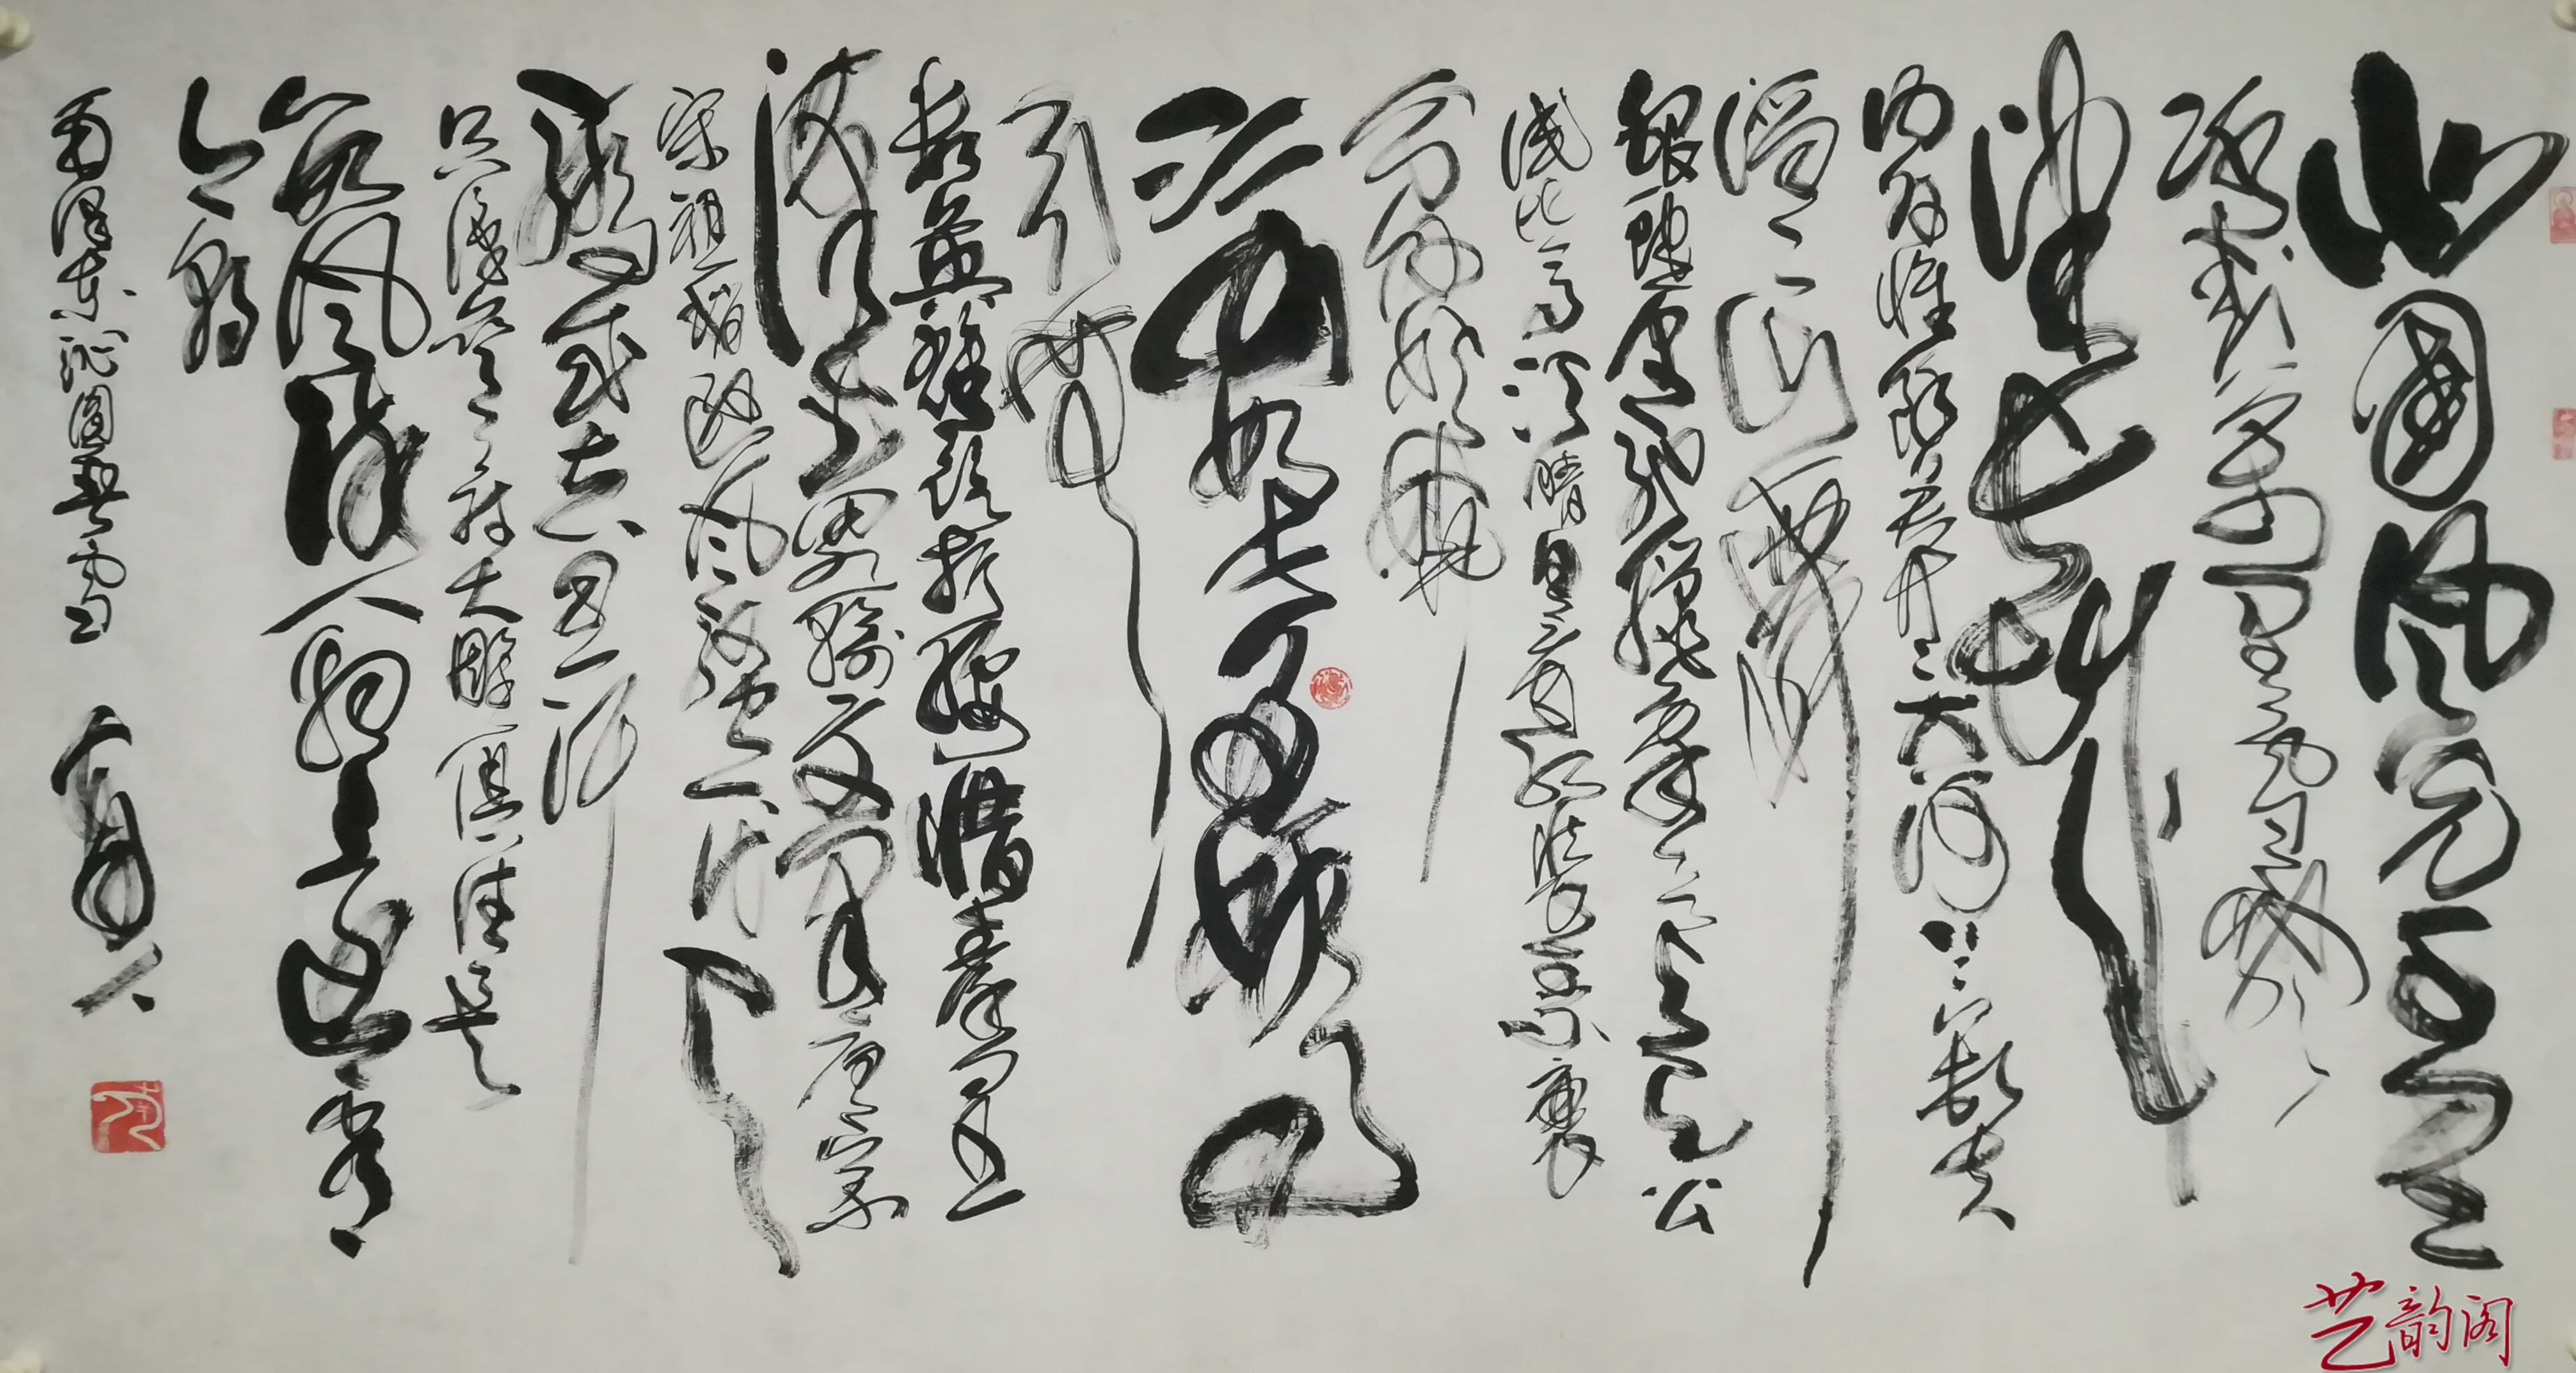 北国风光千里
冰封万里雪飘
望长城
内外惟余莽莽大河上下顿失
滔滔山舞
银蛇原驰蜡象欲与天公
试比高须晴日看红装素裹
分外妖娆
江山如此多娇
引无数
英雄竞折腰惜秦皇
汉武略输文采唐宗
宋祖稍逊风骚一代天
骄成吉思汗
只识弯弓射大雕俱往矣
数风流人物还看
今朝
毛泽东词沁园春雪
艺韵阁